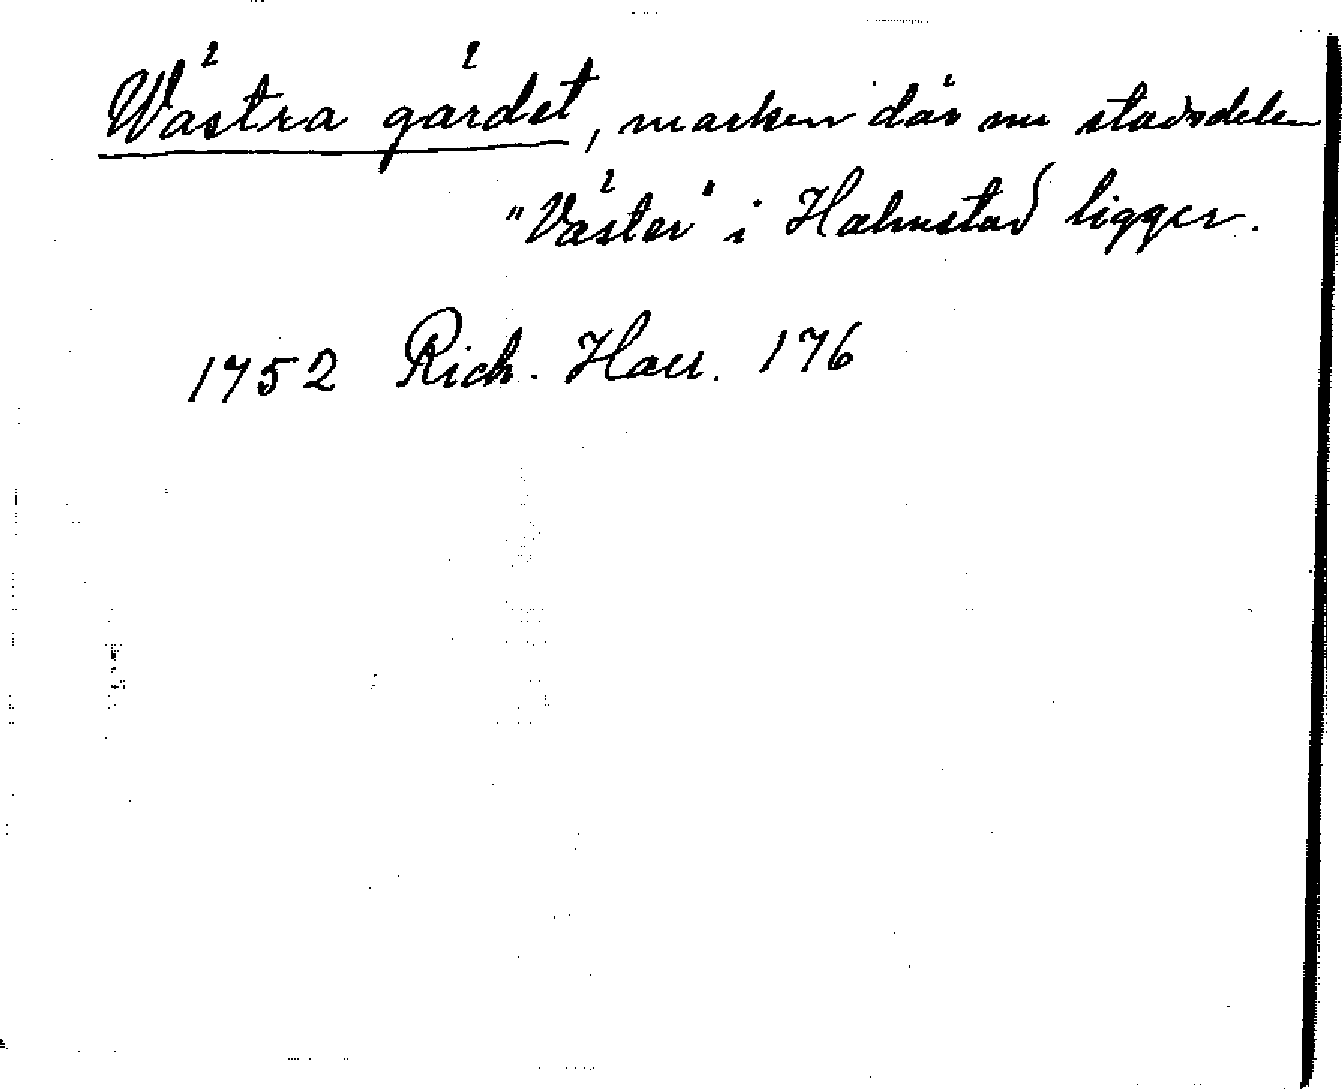 Wästra gärdet, marken där nu stadsdelen
"Väster" i Halmstad ligger.
1752 Rich. Hall. 176